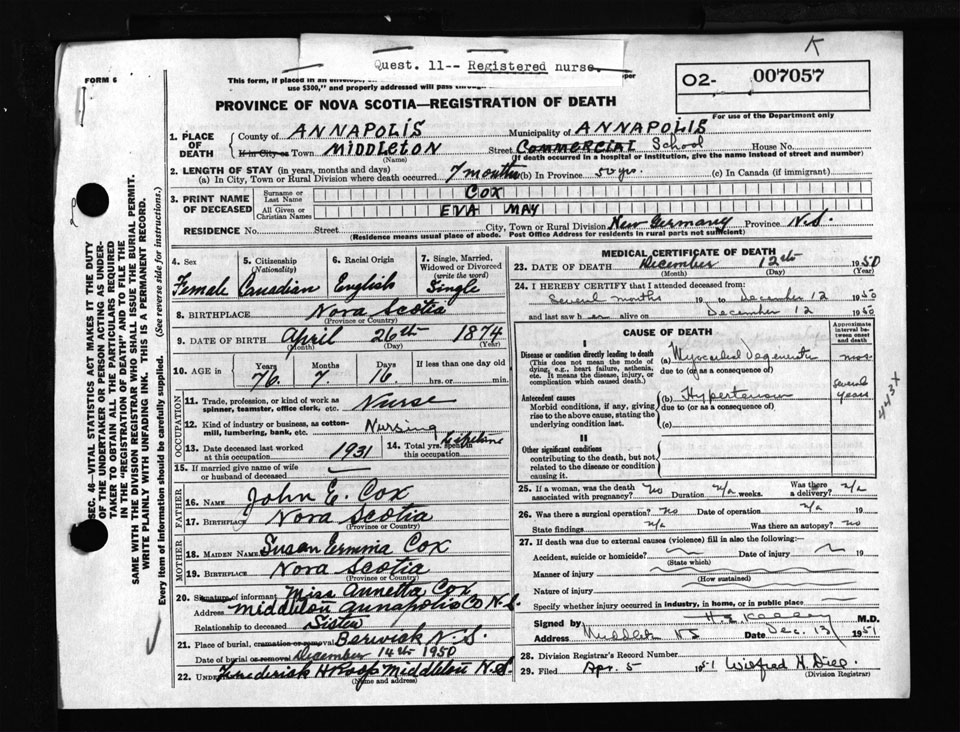 K
Quest. 11-- Registered nurse.
FORM 6
This form, if placed in an envelope,
use $300," and properly addressed will pass through
02- 007057
PROVINCE OF NOVA SCOTIA—REGISTRATION OF DEATH
For use of the Department only
1. PLACE OF DEATH County of ANNAPOLIS Municipality of ANNAPOLIS
If in City or Town MIDDLETON Street COMMERCIAL School House No.
(Name) (If death occurred in a hospital or institution, give the name instead of street and number)
2. LENGTH OF STAY (in years, months and days)
(a) In City, Town or Rural Division where death occurred 7 months (b) In Province 50 yrs. (c) In Canada (if immigrant)
3. PRINT NAME OF DECEASED Surname or Last Name COX
All Given or Christian Names EVA MAY
RESIDENCE No. Street City, Town or Rural Division New Germany Province N.S.
(Residence means usual place of abode. Post Office Address for residents in rural parts not sufficient)
4. Sex Female
5. Citizenship (Nationality) Canadian
6. Racial Origin English
7. Single, Married, Widowed or Divorced (write the word) Single
8. BIRTHPLACE Nova Scotia
(Province or Country)
9. DATE OF BIRTH April 26th 1874
(Month) (Day) (Year)
10. AGE in Years 76 Months 7 Days 16 If less than one day old hrs. or min.
OCCUPATION
11. Trade, profession, or kind of work as spinner, teamster, office clerk, etc. Nurse
12. Kind of industry or business, as cotton-mill, lumbering, bank, etc. Nursing
13. Date deceased last worked at this occupation 1931
14. Total yrs. spent in this occupation Lifetime
15. If married give name of wife or husband of deceased
FATHER
16. Name John E. Cox
17. Birthplace Nova Scotia
(Province or Country)
MOTHER
18. MAIDEN NAME Susan Cox
19. BIRTHPLACE Nova Scotia
(Province or Country)
20. Signature of informant Miss Annetta Cox
Address Middleton Annapolis Co N.S.
Relationship to deceased Sister
21. Place of burial, cremation or removal Berwick N.S.
Date of burial or removal December 14th 1950
22. Undertaker Frederick H Roop Middleton N.S.
(Name and address)
MEDICAL CERTIFICATE OF DEATH
23. DATE OF DEATH December 12th 1950
(Month) (Day) (Year)
24. I HEREBY CERTIFY that I attended deceased from:
Several months 19 to December 12 1950
and last saw h er alive on December 12 1950
CAUSE OF DEATH
Approximate interval between onset and death
I
Disease or condition directly leading to death
(This does not mean the mode of dying, e.g., heart failure, asthenia, etc. It means the disease, injury, or complication which caused death.)
(a) mos.
due to (or as a consequence of)
Antecedent causes
Morbid conditions, if any, giving rise to the above cause, stating the underlying condition last.
(b) Hypertension Several years
due to (or as a consequence of)
(c)
443X
II
Other significant conditions
contributing to the death, but not related to the disease or condition causing it.
25. If a woman, was the death associated with pregnancy? no Duration n/a weeks. Was there a delivery? n/a
26. Was there surgical operation? no Date of operation n/a 19
State findings n/a Was there an autopsy? no
27. If death was due to external causes (violence) fill in also the following:—
Accident, suicide or homicide? Date of injury 19
(State which)
Manner of injury
(How sustained)
Nature of injury
Specify whether injury occurred in industry, in home, or in public place
Signed by M.D.
Address Middleton NS Date Dec. 13 1951
28. Division Registrar's Record Number
29. Filed Apr. 5 1951 Wilfred H.
(Division Registrar)
SEC. 46—VITAL STATISTICS ACT MAKES IT THE DUTY
OF THE UNDERTAKER OR PERSON ACTING AS UNDER-
TAKER TO OBTAIN ALL THE PARTICULARS REQUIRED
IN THE "REGISTRATION OF DEATH" AND TO FILE THE
SAME WITH THE DIVISION REGISTRAR WHO SHALL ISSUE THE BURIAL PERMIT.
WRITE PLAINLY WITH UNFADING INK. THIS IS A PERMANENT RECORD.
Every item of information should be carefully supplied. (See reverse side for instructions.)